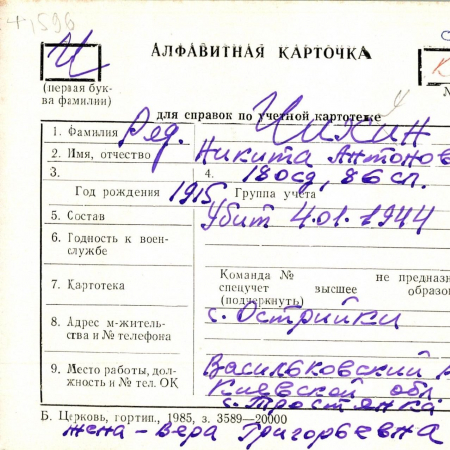 +, 1596
АЛФАВИТНАЯ КАРТОЧКА
И
(первая бук-
ва фамилии)
для справок по учетной картотеке
1. Фамилия Ряд. Чихин
2. Имя, отчество Никита Антонов
3. 4. 180сд, 86 сп.
Год рождения 1915 Группа учета
5. Состав Убит 4.01.1944
6. Годность к воен-
службе
7. Картотека
Команда № не предназн
спецучет высшее образо
(подчеркнуть)
8. Адрес м-житель-
ства и № телефона
с. Острийки
9. Место работы, дол-
жность и № тел. ОК
Васильковский р
Киевской обл.
с. Тростянка
Б. Церковь, гортип., 1985, з. 3589—20000
жена - Вера Григорьевна